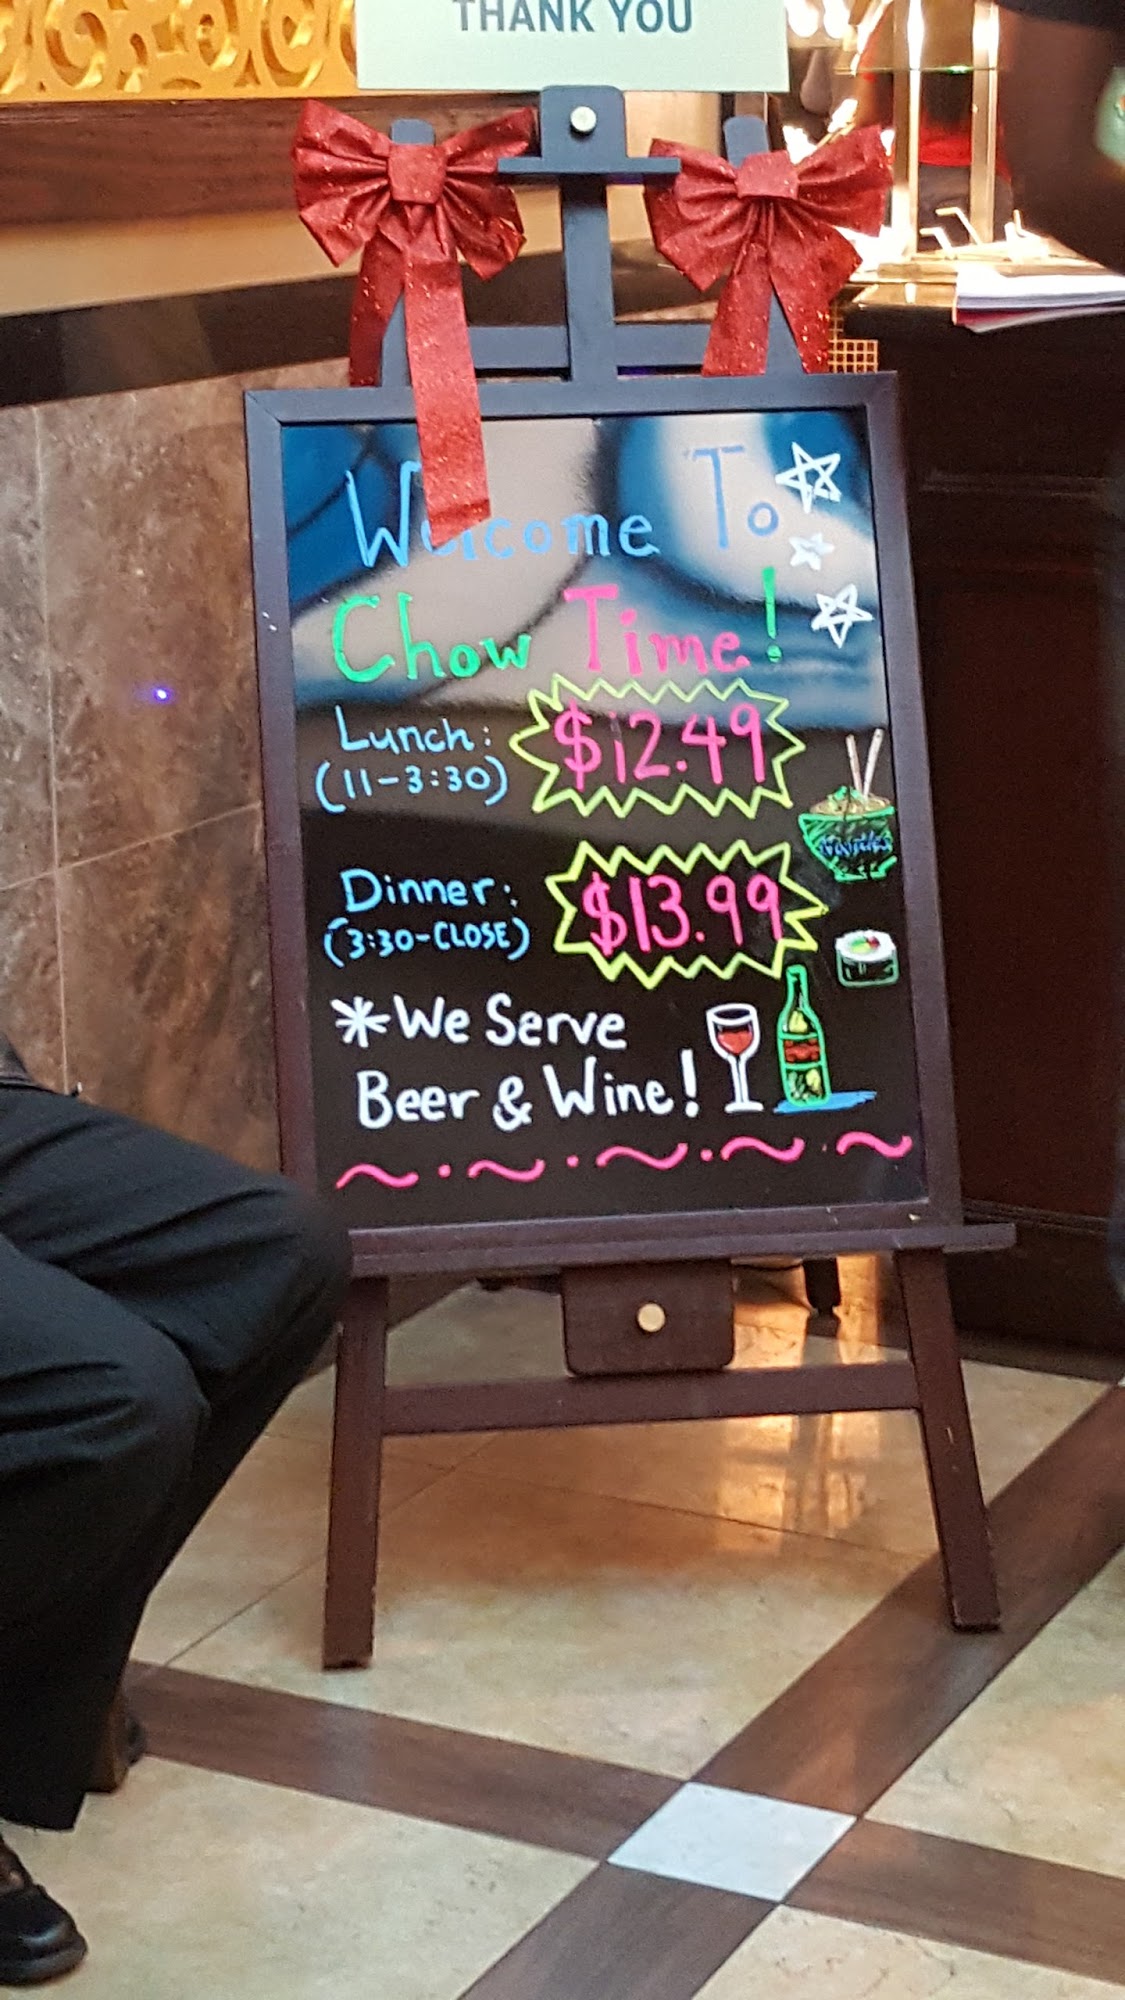 THANK YOU
Welcome To
Chow Time!
Lunch: $12.49
(11-3:30)
Dinner: $13.99
(3:30-CLOSE)
*We Serve
Beer & Wine!